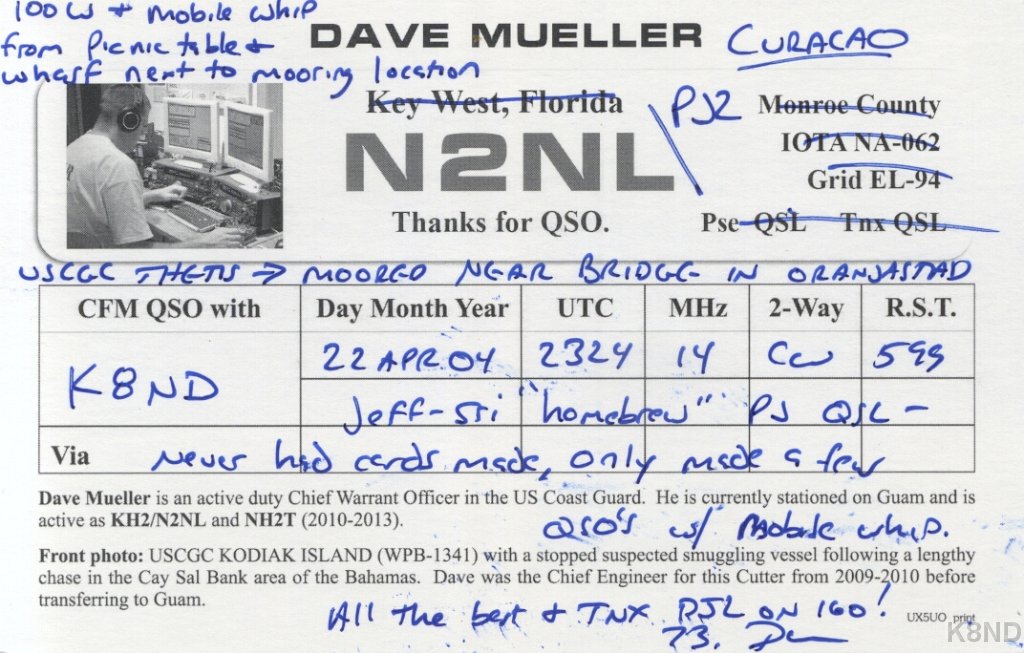 100W + mobile whip
from Picnic table +
wharf next to mooring location
DAVE MUELLER
CURACAO
Key West, Florida
PJ2
Monroe County
IOTA NA-062
N2NL
Grid EL-94
Thanks for QSO.
Pse QSL Tnx QSL
USCGC THETIS → MOORED NEAR BRIDGE IN ORANJASTAD
CFM QSO with Day Month Year UTC MHz 2-Way R.S.T.
K8ND 22 APR 04 2324 14 CW 599
Jeff - "homebrew" PJ QSL -
Via Never had cards made, only made a few
QSO's w/ mobile whip.
Dave Mueller is an active duty Chief Warrant Officer in the US Coast Guard. He is currently stationed on Guam and is
active as KH2/N2NL and NH2T (2010-2013).
Front photo: USCGC KODIAK ISLAND (WPB-1341) with a stopped suspected smuggling vessel following a lengthy
chase in the Cay Sal Bank area of the Bahamas. Dave was the Chief Engineer for this Cutter from 2009-2010 before
transferring to Guam.
All the best + TNX PJ2 ON 160!
73, Dave
UX5UO print
K8ND